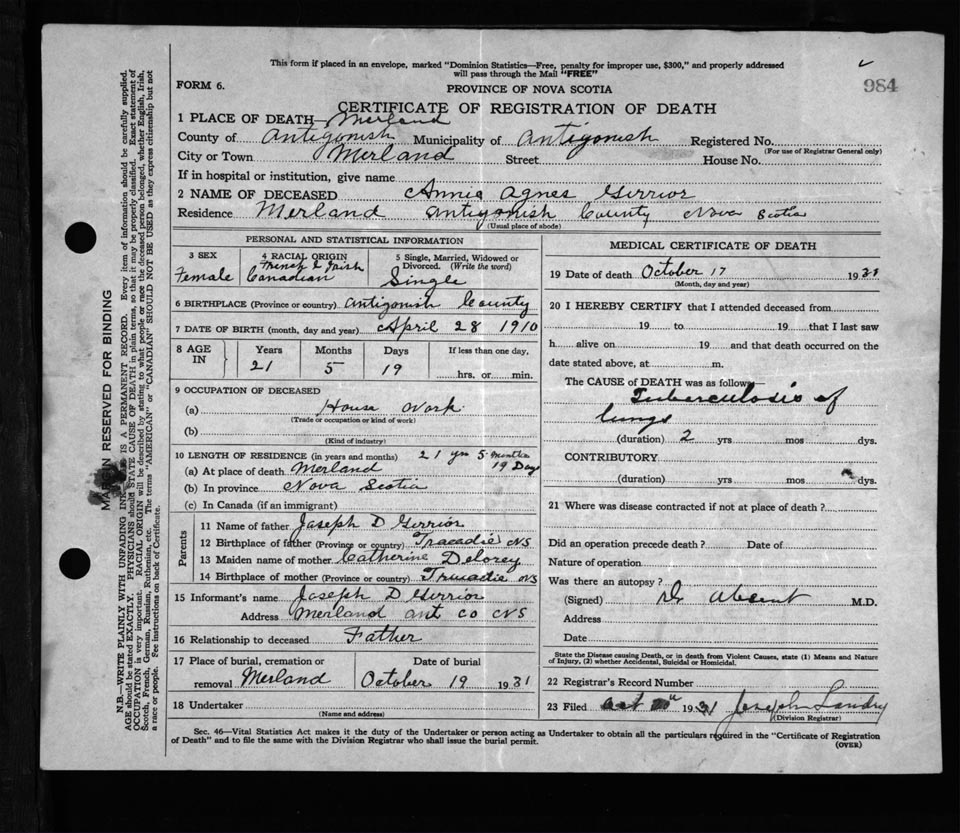 This form if placed in an envelope, marked "Dominion Statistics—Free, penalty for improper use, $300," and properly addressed
will pass through the Mail "FREE"
984
FORM 6.
PROVINCE OF NOVA SCOTIA
CERTIFICATE OF REGISTRATION OF DEATH
1 PLACE OF DEATH— Merland
County of Antigonish Municipality of Antigonish Registered No.
(For use of Registrar General only)
City or Town Merland Street House No.
If in hospital or institution, give name
2 NAME OF DECEASED Annie Agnes Girrior
Residence Merland Antigonish County Nova Scotia
(Usual place of abode)
PERSONAL AND STATISTICAL INFORMATION
3 SEX
Female
4 RACIAL ORIGIN
French & Irish
Canadian
5 Single, Married, Widowed or
Divorced. (Write the word)
Single
6 BIRTHPLACE (Province or country) Antigonish County
7 DATE OF BIRTH (month, day and year) April 28 1910
8 AGE IN
Years Months Days If less than one day,
21 5 19 hrs. or min.
9 OCCUPATION OF DECEASED
(a) House Work
(Trade or occupation or kind of work)
(b)
(Kind of industry)
10 LENGTH OF RESIDENCE (in years and months) 21 yrs 5 months
19 Days
(a) At place of death Merland
(b) In province Nova Scotia
(c) In Canada (if an immigrant)
Parents
11 Name of father Joseph D Girrior
12 Birthplace of father (Province or country) Tracadie NS
13 Maiden name of mother Catherine Delorey
14 Birthplace of mother (Province or country) NS
15 Informant's name Joseph D Girrior
Address Merland Ant Co NS
16 Relationship to deceased Father
17 Place of burial, cremation or
removal Merland
Date of burial
October 19 1931
18 Undertaker
(Name and address)
MEDICAL CERTIFICATE OF DEATH
19 Date of death October 17 1931
(Month, day and year)
20 I HEREBY CERTIFY that I attended deceased from
19 to 19 that I last saw
h alive on 19 and that death occurred on the
date stated above, at m.
The CAUSE of DEATH was as follows—
Tuberculosis of
lungs
(duration) 2 yrs mos dys.
CONTRIBUTORY
(duration) yrs mos dys.
21 Where was disease contracted if not at place of death?
Did an operation precede death? Date of
Nature of operation
Was there an autopsy?
(Signed) Dr Absent M.D.
Address
Date
State the Disease causing Death, or in death from Violent Causes, state (1) Means and Nature
of Injury, (2) whether Accidental, Suicidal or Homicidal.
22 Registrar's Record Number
23 Filed Oct 1931 Joseph Landry
(Division Registrar)
Sec. 46—Vital Statistics Act makes it the duty of the Undertaker or person acting as Undertaker to obtain all the particulars required in the "Certificate of Registration
of Death" and to file the same with the Division Registrar who shall issue the burial permit.
(OVER)
MARGIN RESERVED FOR BINDING
N.B.—WRITE PLAINLY WITH UNFADING INK. IS A PERMANENT RECORD. Every item of information should be carefully supplied.
AGE should be stated EXACTLY. PHYSICIANS should STATE CAUSE OF DEATH in plain terms, so that it may be properly classified. Exact statement of
OCCUPATION is very important. RACIAL ORIGIN will be described by stating to what people or race the deceased person belonged, whether English, Irish,
Scotch, French, German, Russian, Ruthenian, etc. The terms "AMERICAN" or "CANADIAN" SHOULD NOT BE USED as they express citizenship but not
a race or people. See instructions on back of Certificate.